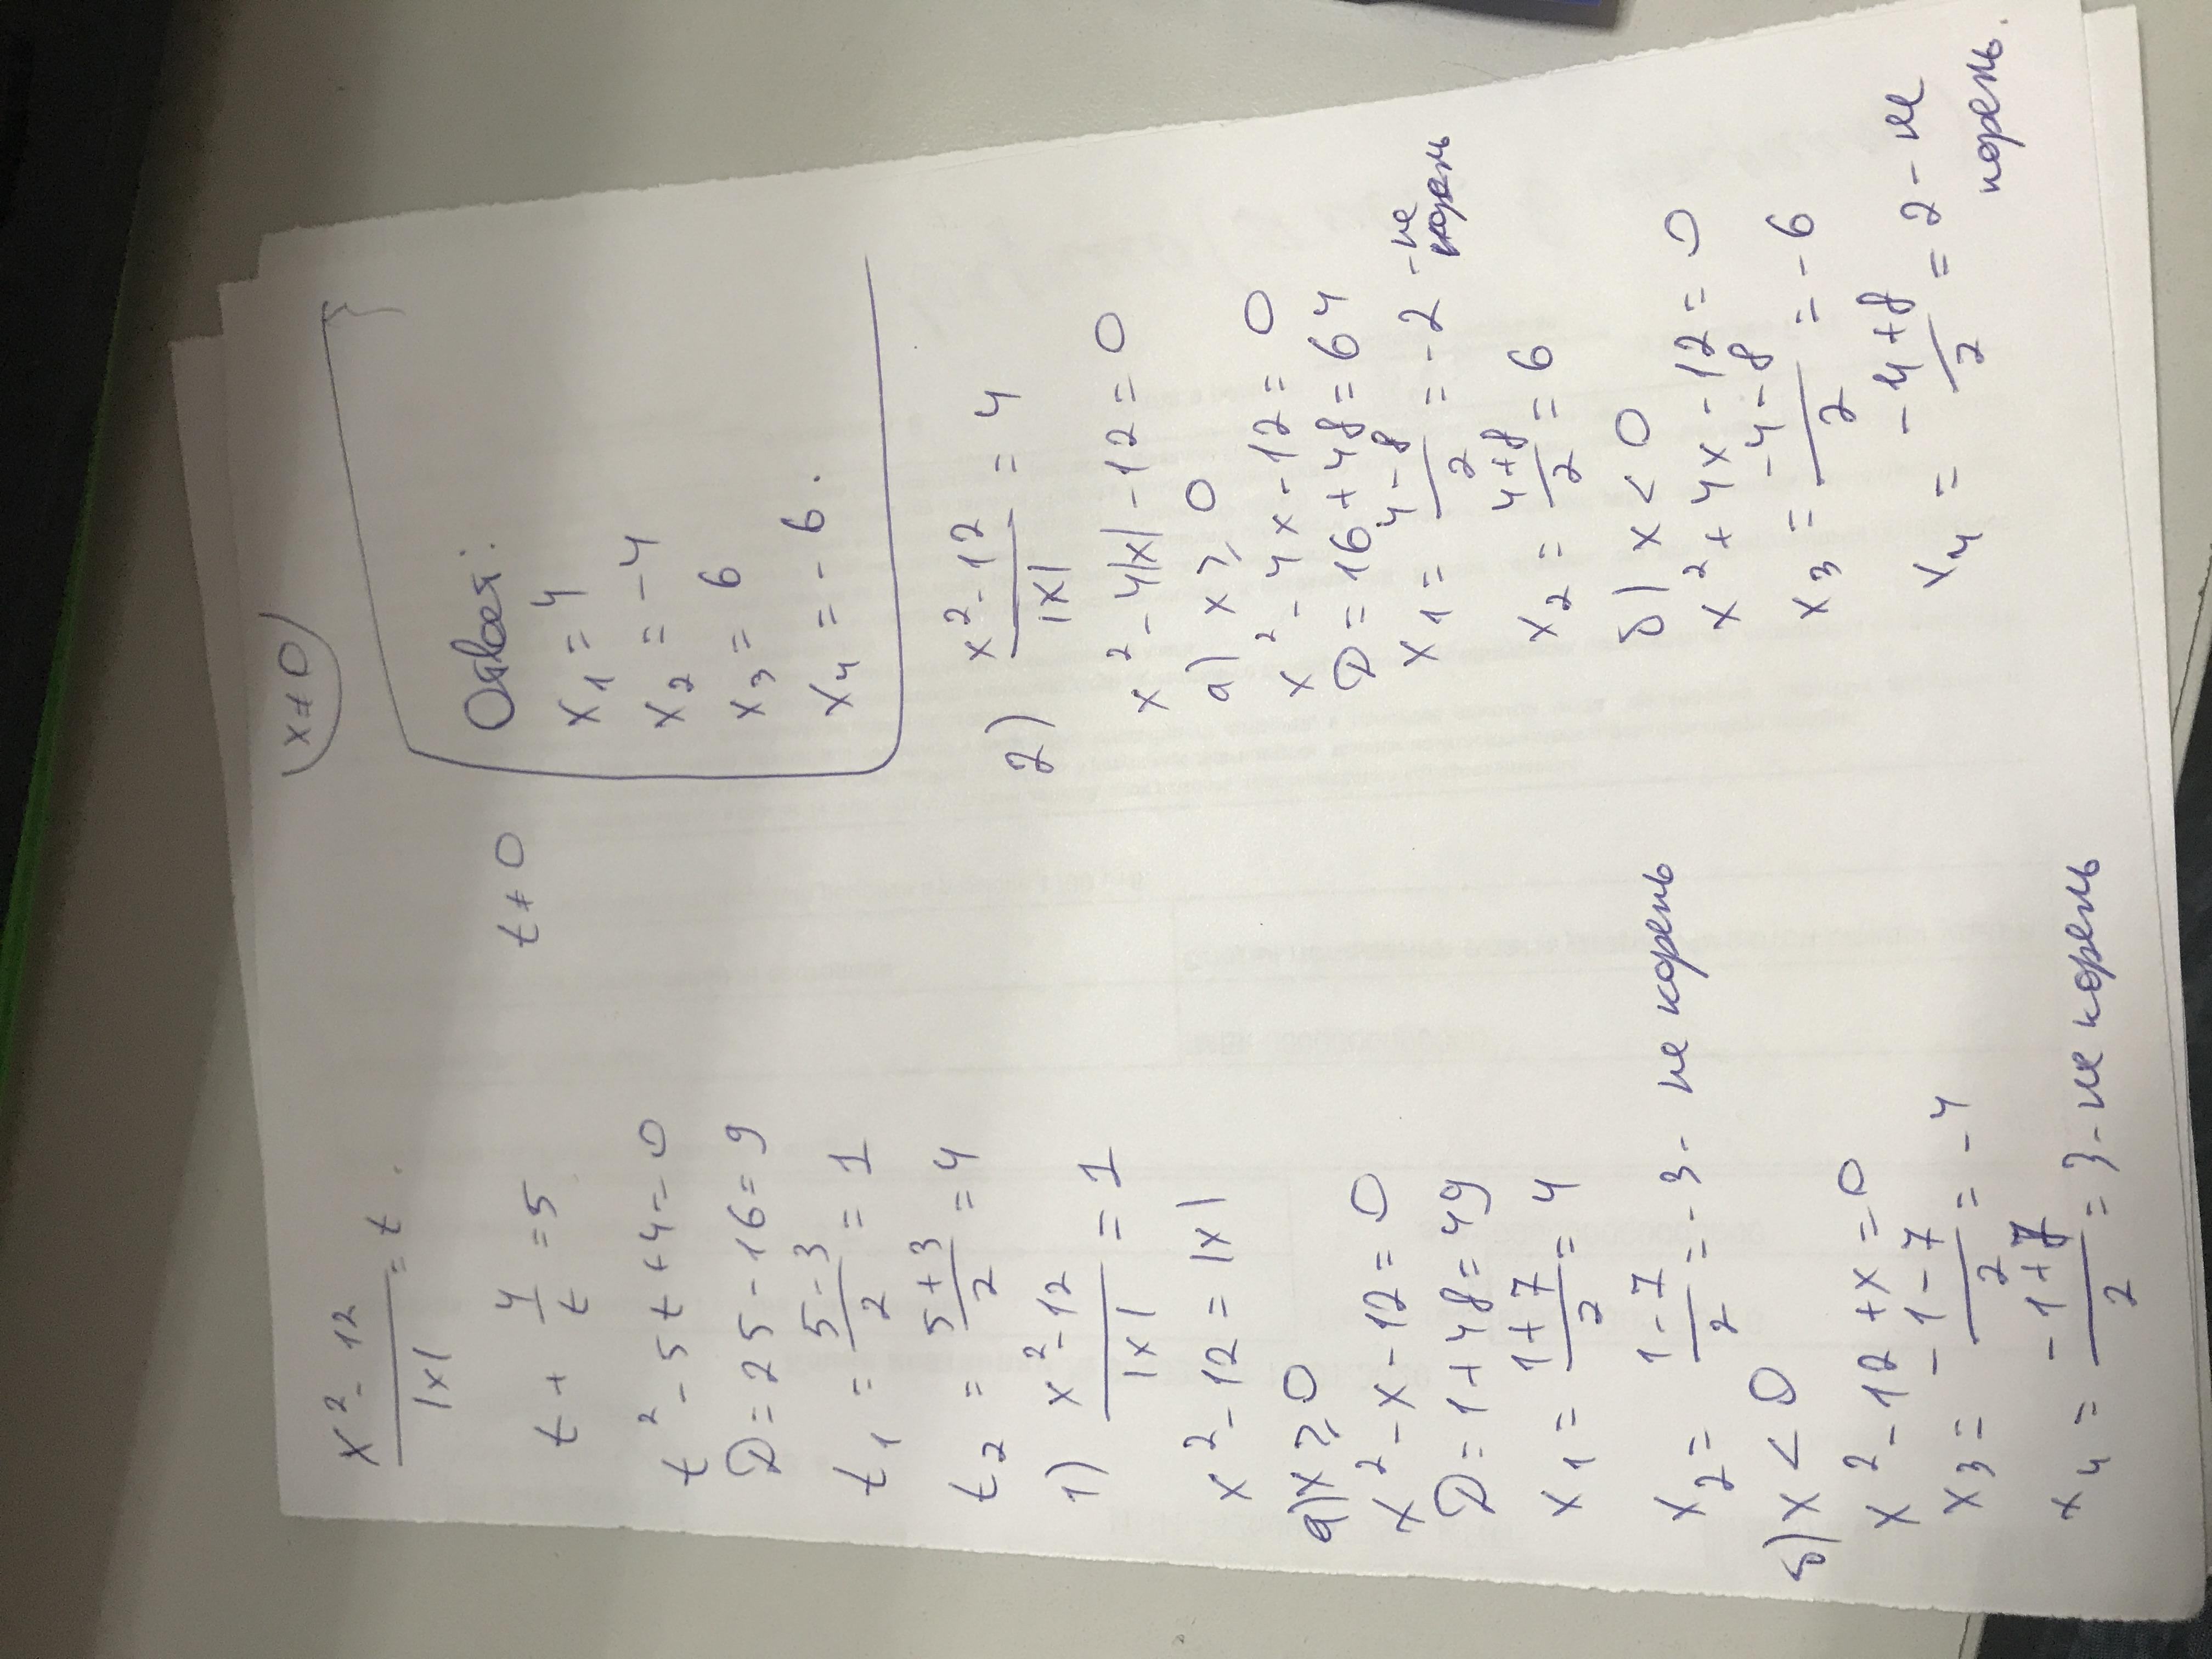 x² - 12 / |x| = t.
x ≠ 0
t + 4/t = 5
t ≠ 0
t² - 5t + 4 = 0
D = 25 - 16 = 9
t₁ = 5 - 3 / 2 = 1
t₂ = 5 + 3 / 2 = 4
1) x² - 12 / |x| = 1
x² - 12 = |x|
а) x ⩾ 0
x² - x - 12 = 0
D = 1 + 48 = 49
x₁ = 1 + 7 / 2 = 4
x₂ = 1 - 7 / 2 = -3 - не корень
б) x < 0
x² - 12 + x = 0
x₃ = -1 - 7 / 2 = -4
x₄ = -1 + 7 / 2 = 3 - не корень
Ответ:
x₁ = 4
x₂ = -4
x₃ = 6
x₄ = -6.
2) x² - 12 / |x| = 4
x² - 4|x| - 12 = 0
а) x ⩾ 0
x² - 4x - 12 = 0
D = 16 + 48 = 64
x₁ = 4 - 8 / 2 = -2 - не
корень
x₂ = 4 + 8 / 2 = 6
б) x < 0
x² + 4x - 12 = 0
x₃ = -4 - 8 / 2 = -6
x₄ = -4 + 8 / 2 = 2 - не
корень.